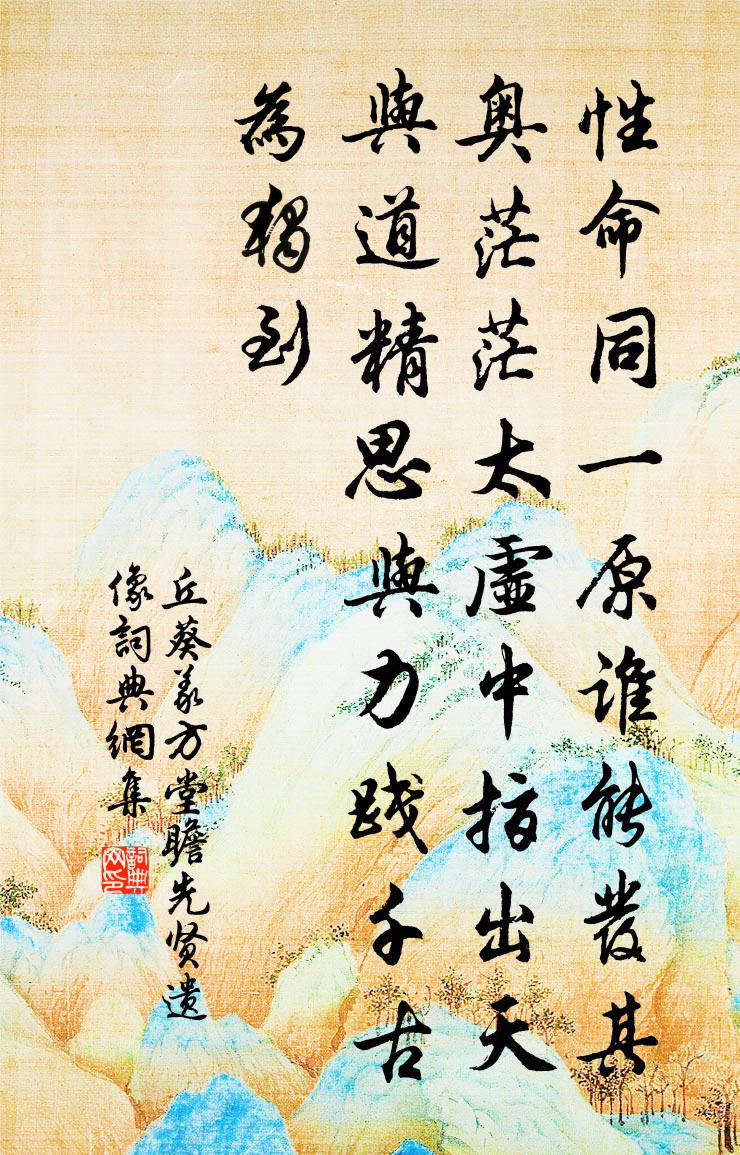 性命同一原誰能發其
奧茫茫太虛中指出天
與道精思與力踐千古
為獨到
丘葵義方堂瞻先贤遺
像詞典網集
詞典
网印